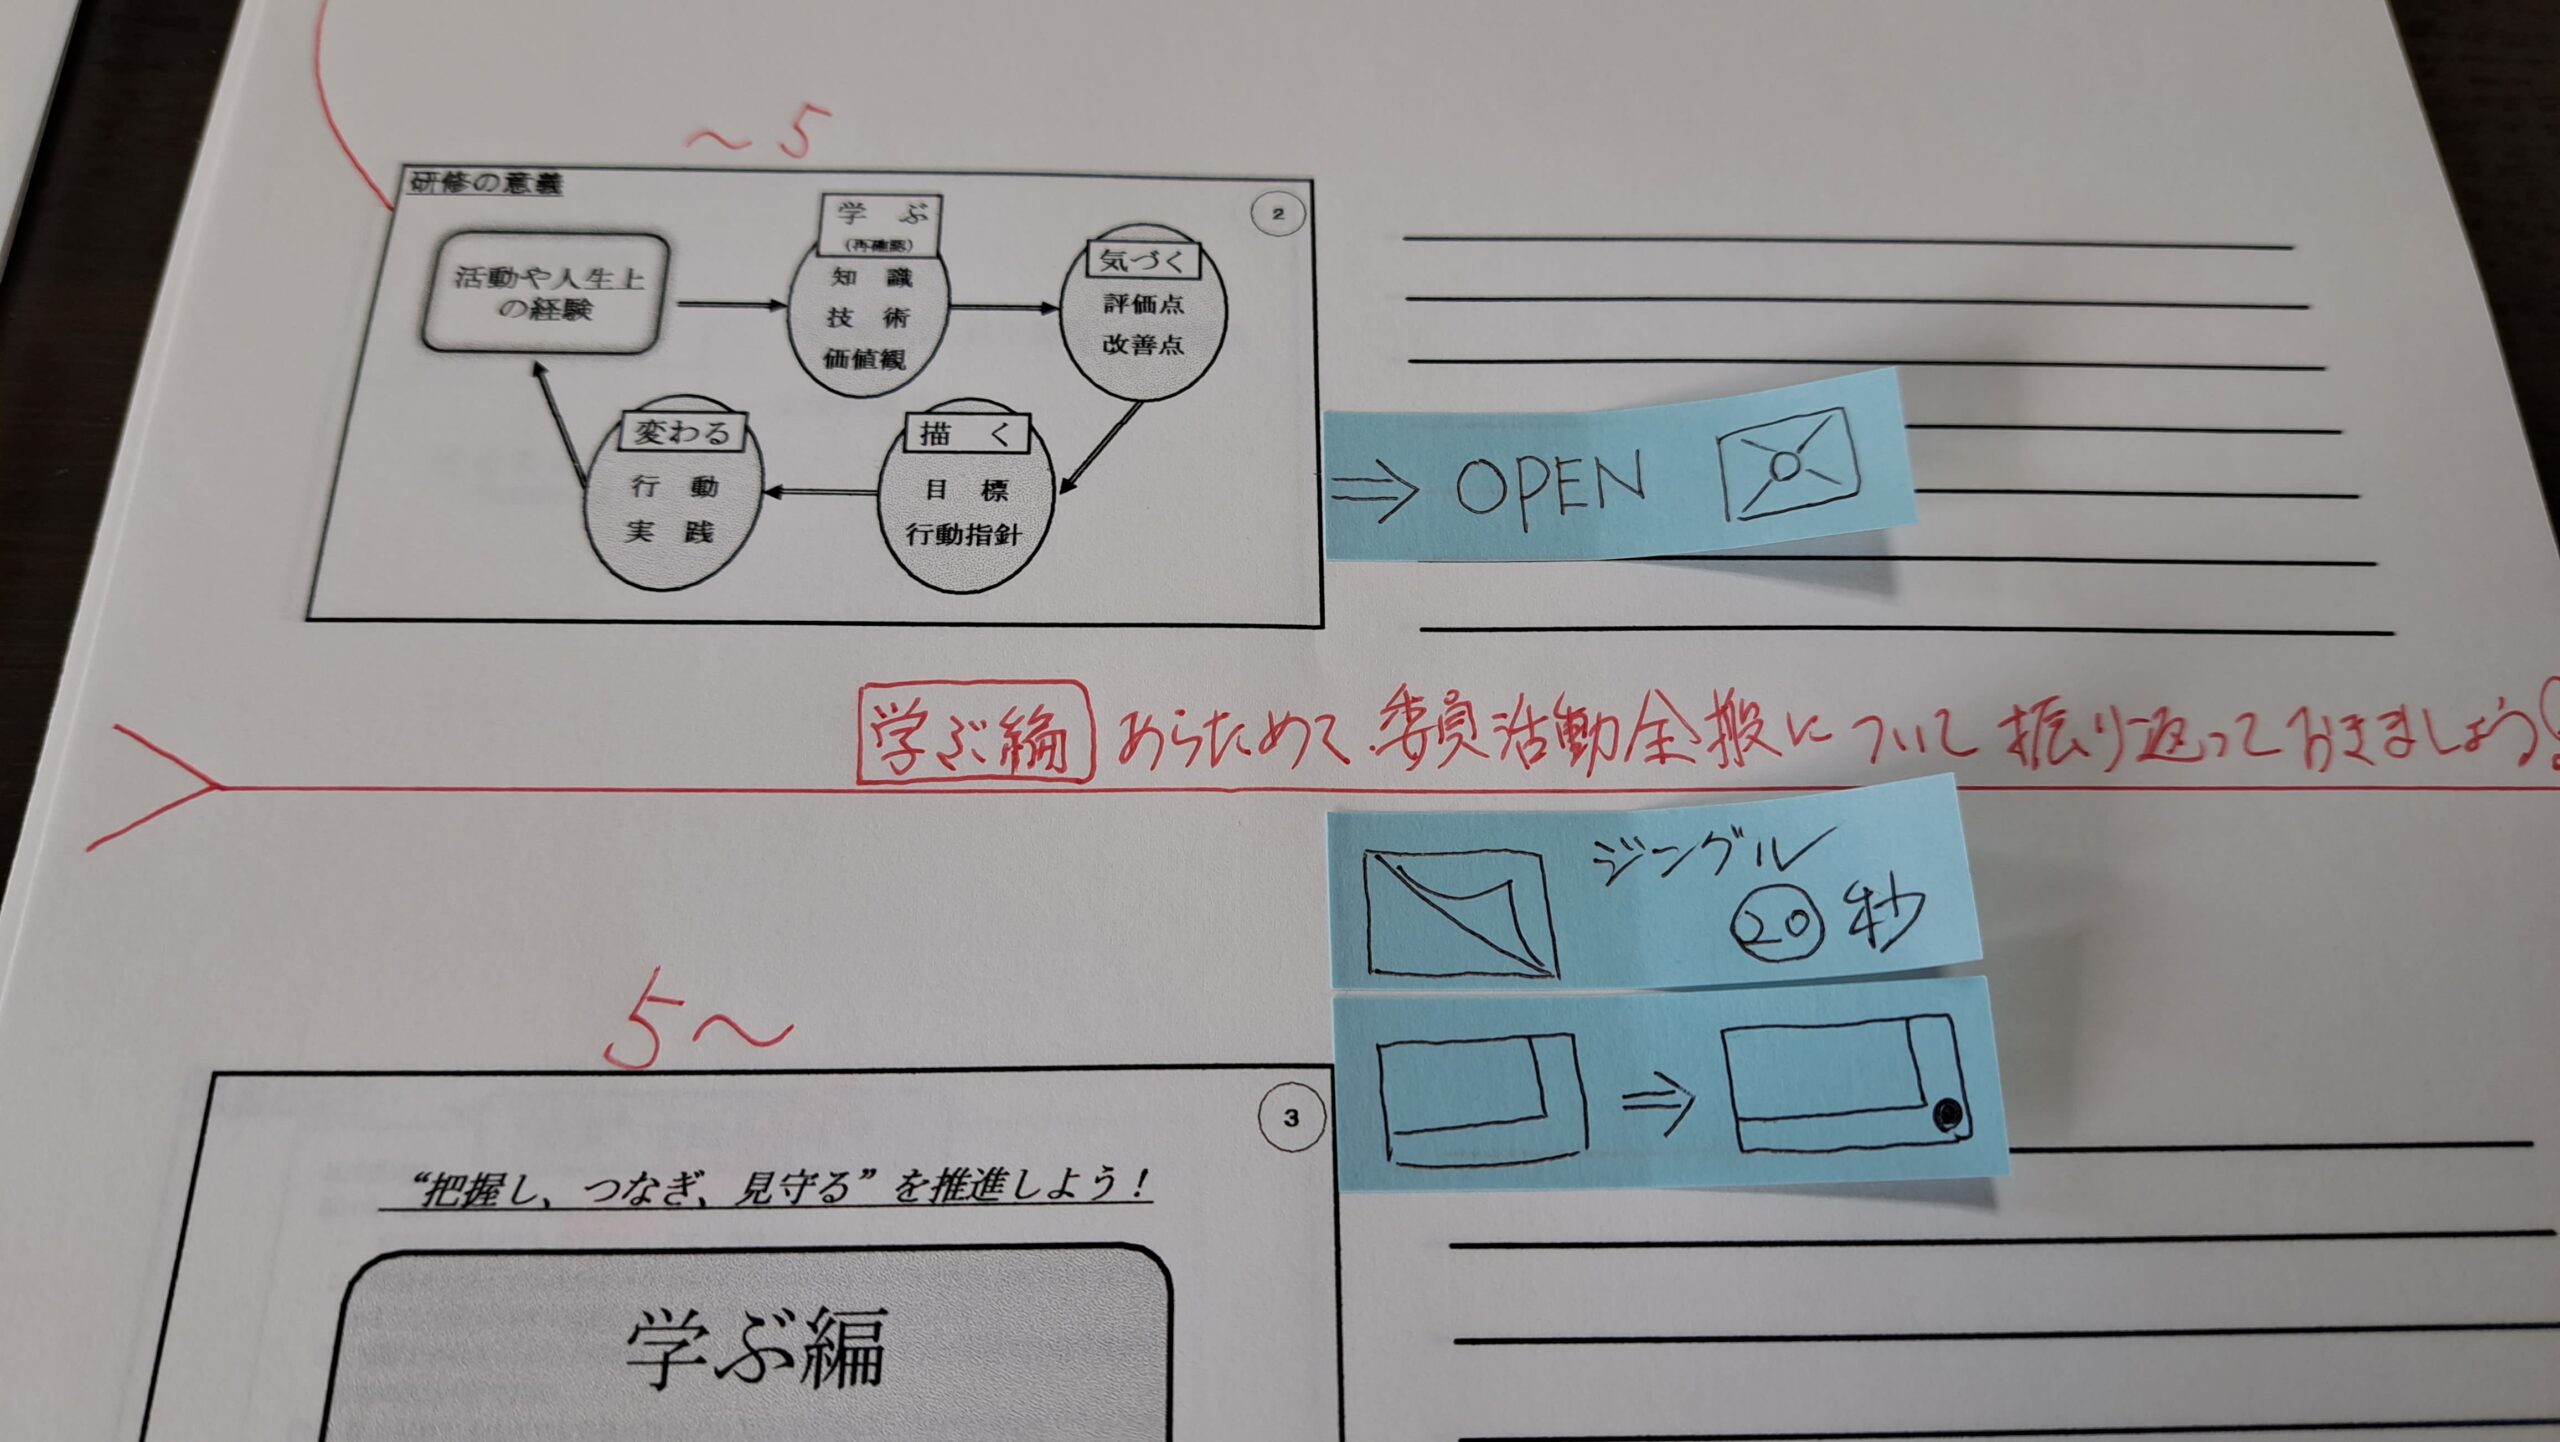 ～5
研修の意義
2
活動や人生上
の経験
学 ぶ
(再確認)
知 識
技 術
価値観
気づく
評価点
改善点
変わる
行 動
実 践
描 く
目 標
行動指針
⇒ OPEN
学ぶ編 あらためて、委員活動全搬について振り返っておきましょう!
ジングル
20秒
5～
⇒
3
“把握し、つなぎ、見守る”を推進しよう!
学ぶ編